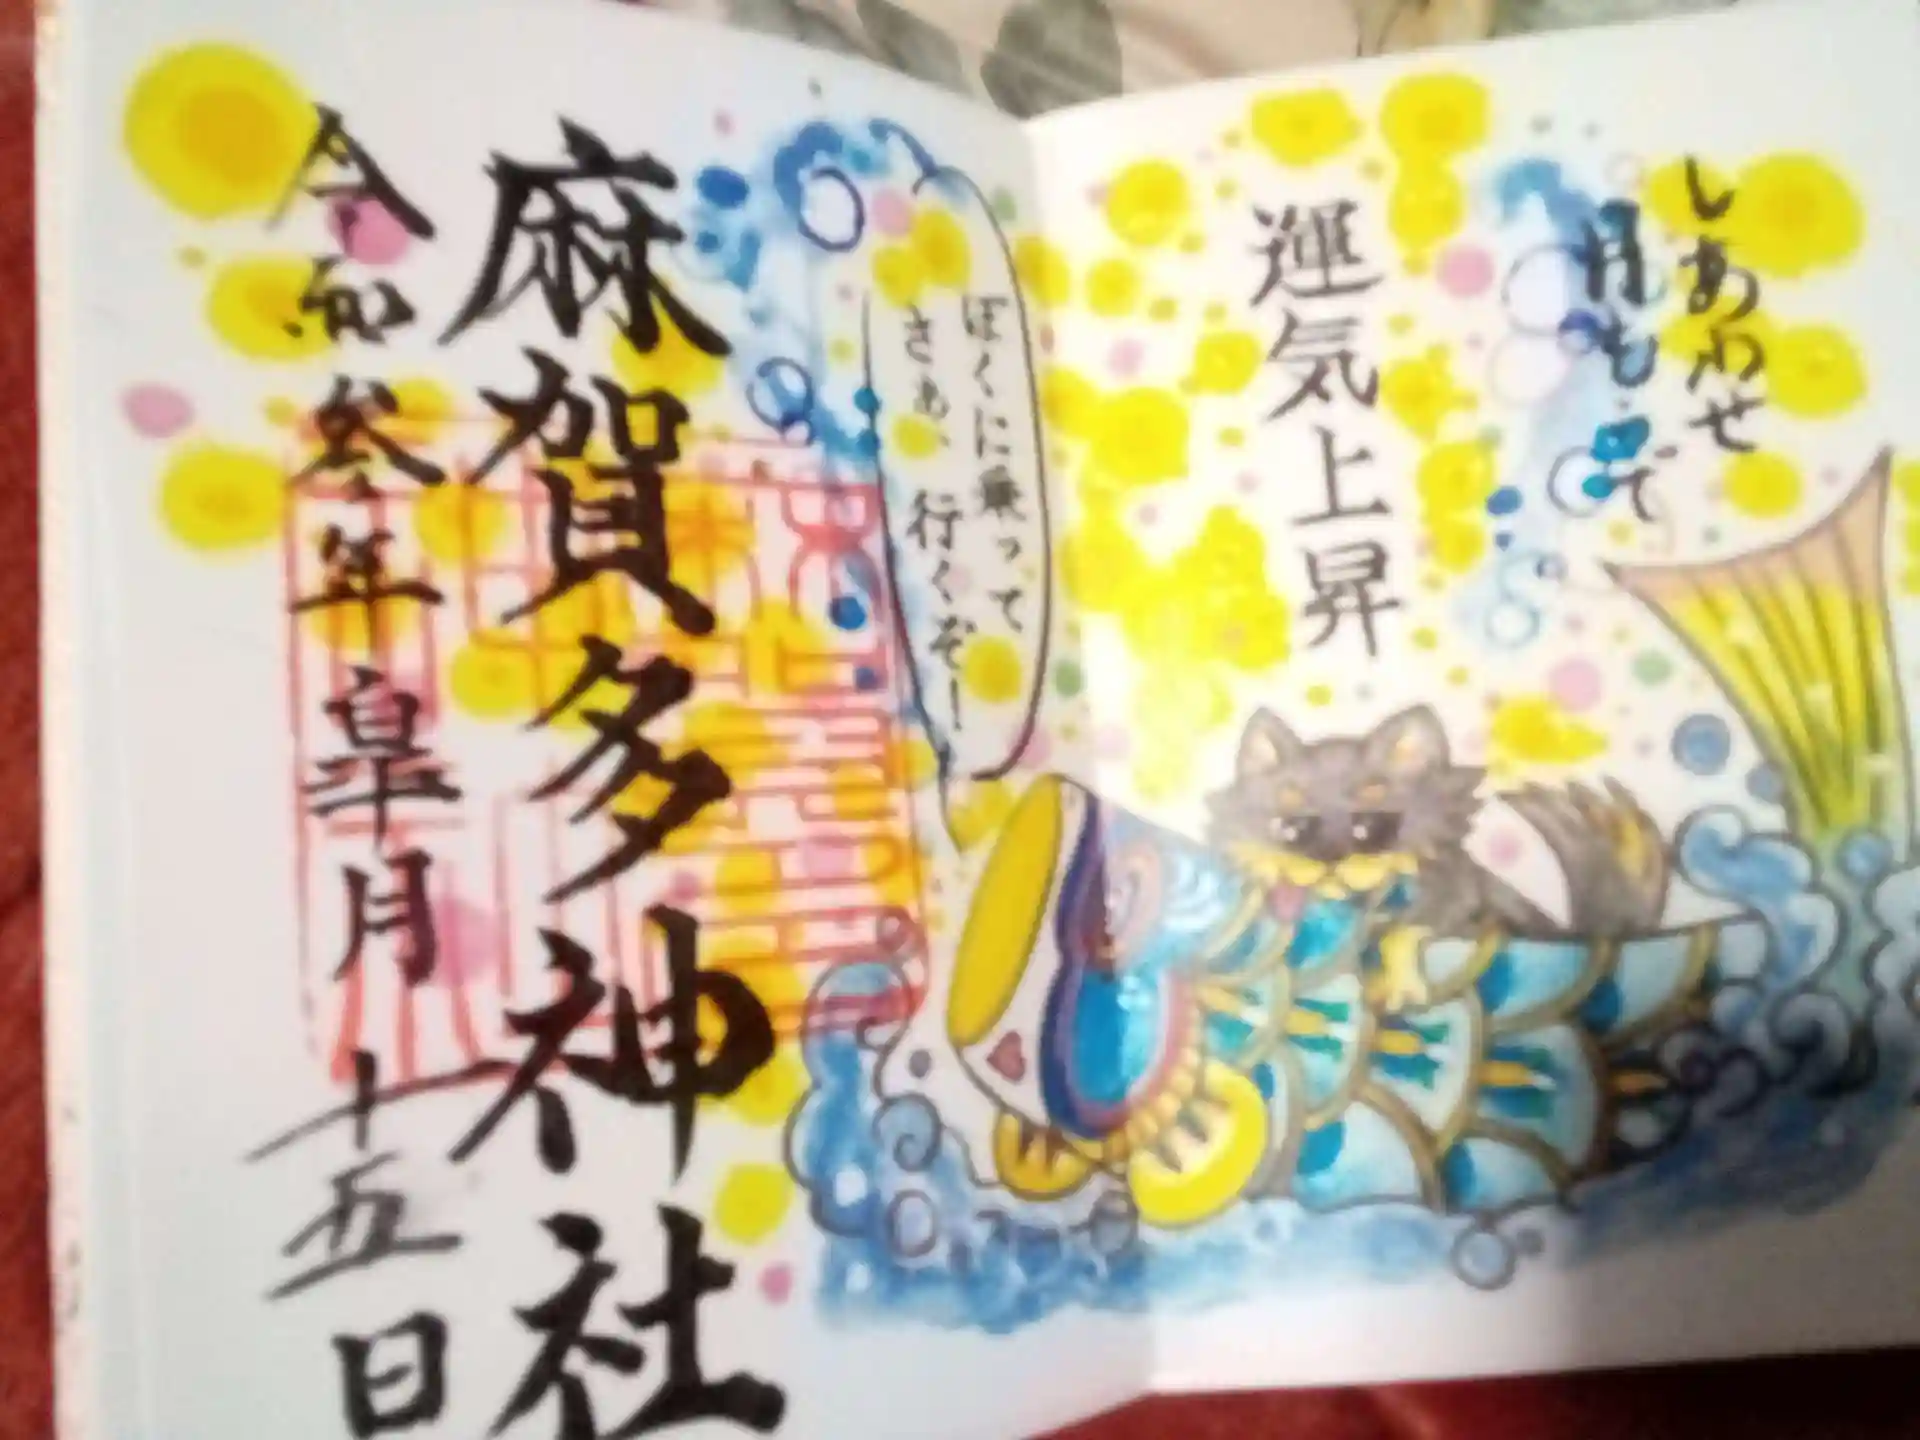 しあわせ
運気上昇
ぼくに乗って
さあ、行くぞ!
麻賀多神社
令和参年皐月十五日